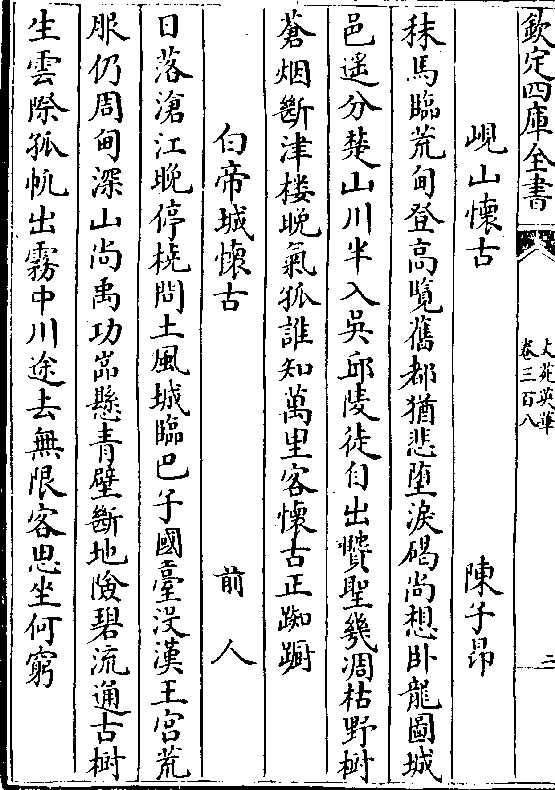 欽定四庫全書
文苑英華
卷三百八
三
峴山懷古
陳子昂
秣馬臨荒甸登高覽舊都猶悲墮淚碣尚想卧龍圖城
邑遥分楚山川半入吳邱陵徒自出賢聖幾凋枯野樹
蒼烟斷津楼晚氣孤誰知萬里客懷古正踟蹰
白帝城懷古
前人
日落滄江晚停橈問土風城臨巴子國臺没漢王宫荒
服仍周甸深山尚禹功岩懸青壁斷地險碧流通古樹
生雲際孤帆出霧中川途去無限客思坐何窮